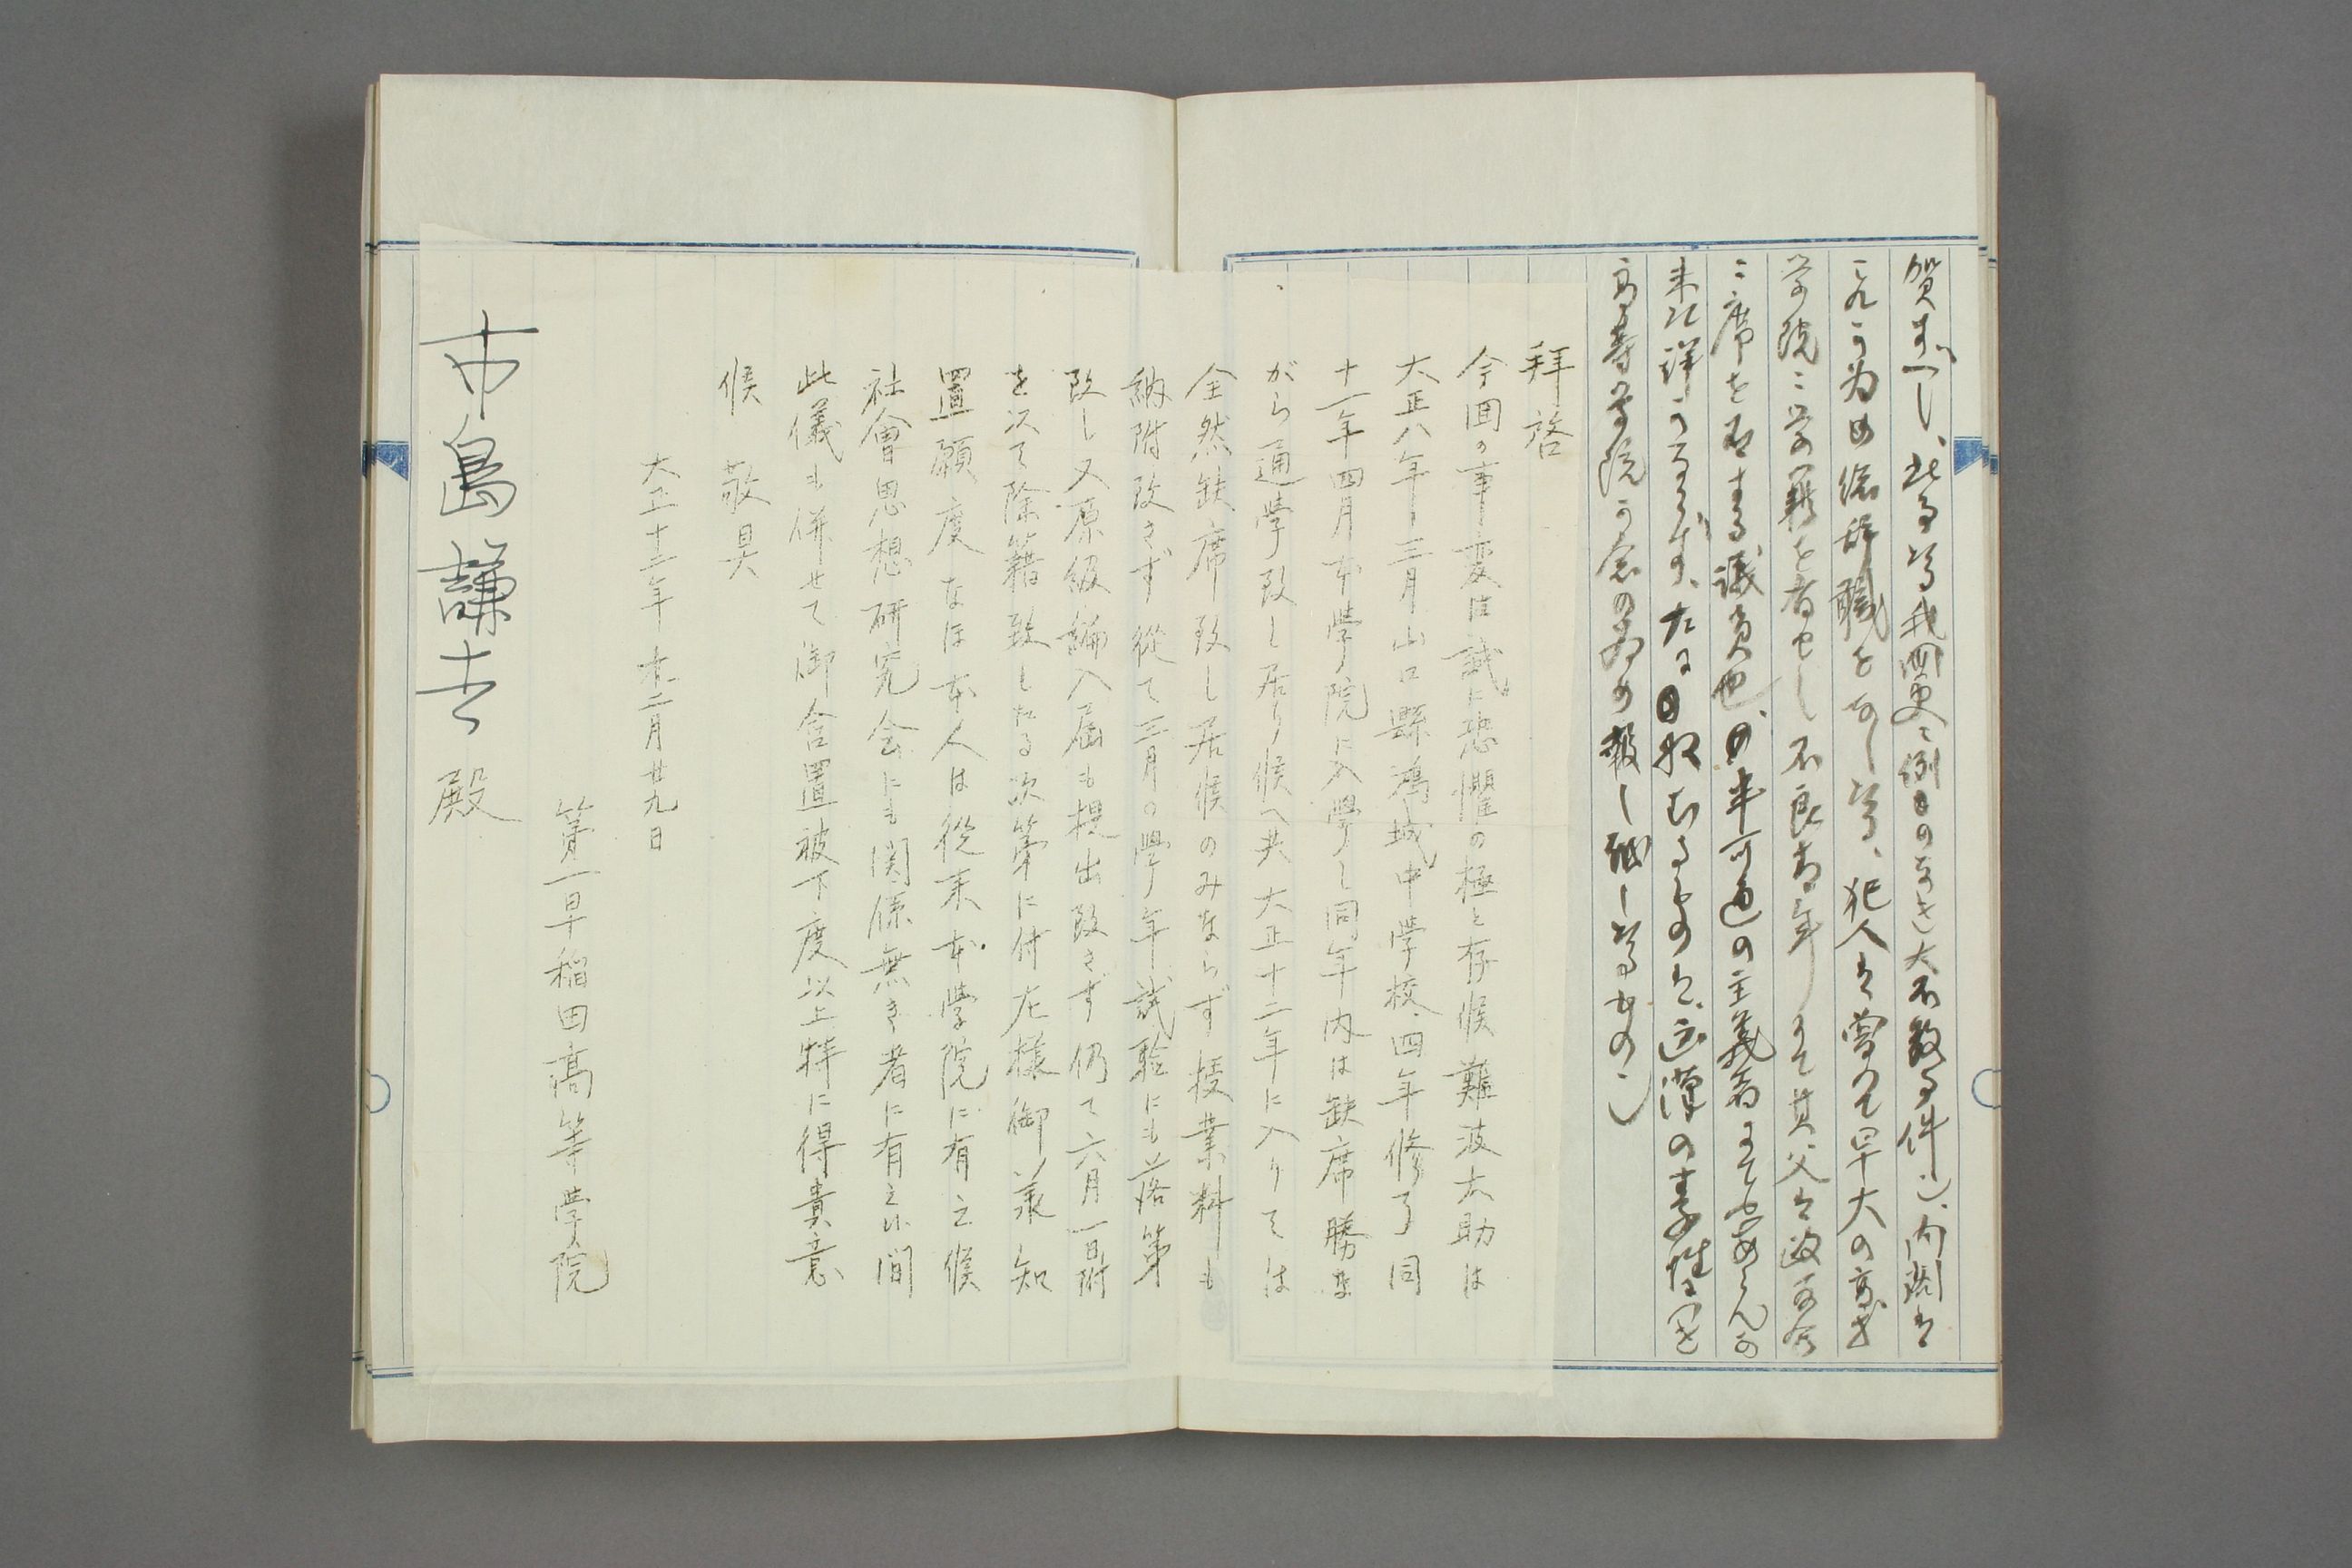 賀すべし、此事実我国史に例のなき大不敬事件に、内閣は
これか為め総辞職をなし、犯人は嘗て早大の高等
学院に学籍を有せし不良青年にて其父は政友会
に席を有する議員也、の主義者にて
未だ詳かならず、左に収むるものは、の素性につき
高等学院か念の為め報し越しものこ
拝啓
今回の事変は誠に恐懼の極と存候難波大助は
大正八年三月山口縣鴻城中學校四年修了同
十一年四月本學院に入學し同年内は缺席勝な
がら通學致し居り候へ共大正十二年に入りては
全然缺席致し居候のみならず授業料も
納附致さず從て三月の學年試驗にも落第
致し又原級編入届も提出致さず仍て六月一日附
を以て除籍致したる次第に付左樣御承知
置願度なほ本人は從来本學院に有之候
社會思想研究会にも関係無き者に有之候間
此儀も併せて御含置被下度以上特に得貴意
候 敬具
大正十二年十二月廿九日
第一早稲田高等学院
市島謙吉殿